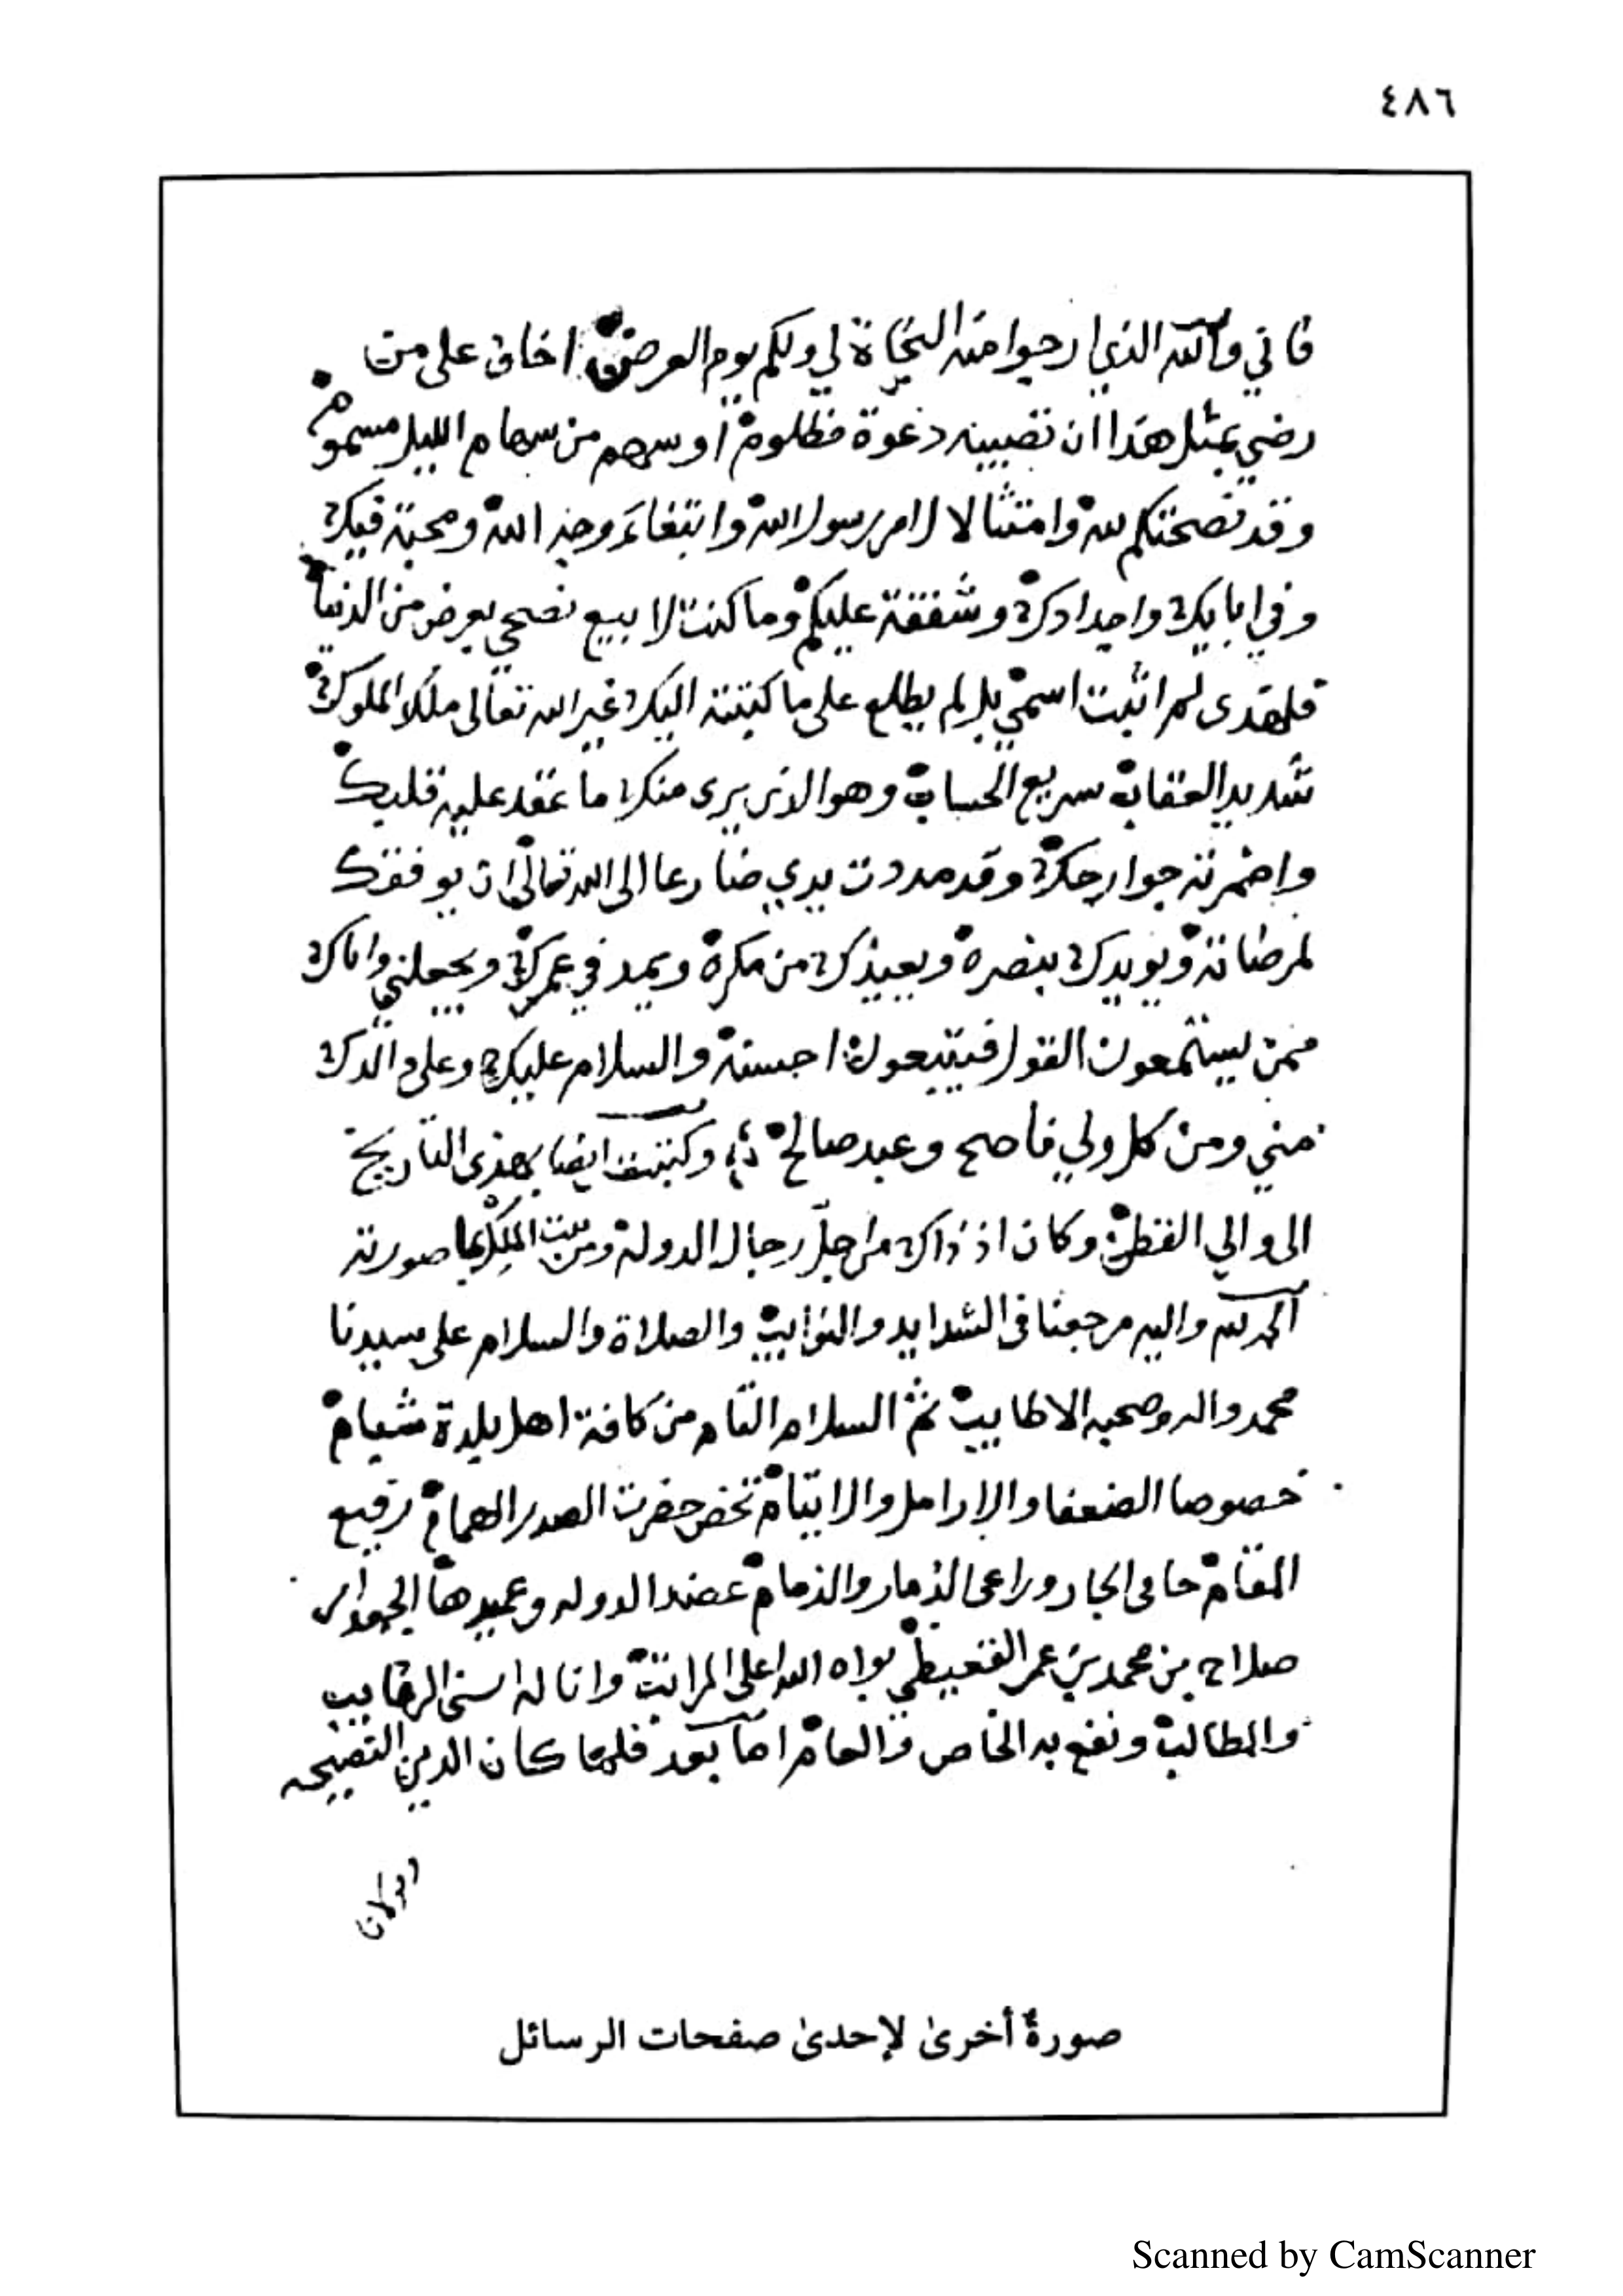 ٤٨٦
فاني والله الذي ارجوا منه النجاة لي ولكم يوم العرض اخاف على من
رضي بمثل هذا ان تصيبه دعوة مظلوم او سهم من سهام الليل مسموم
وقد نصحتكم لله وامتثالا لامر رسول الله وابتغاء وجه الله ومحبة فيك
وفي ابايك واجدادك وشفقة عليكم وما كنت لابيع نصحي بعرض من الدنيا
فلهذى لم اثبت اسمي بل لم يطلع على ما كتبته اليك غير الله تعالى ملك الملوك
شديد العقاب سريع الحساب وهو الذي يرى منك ما عقد عليه قلبك
واضمرته جوارحك وقد مددت يدي ضارعا الى الله تعالى ان يوفقك
لمرضاته ويويدك بنصره ويعيذك من مكره ويمد في عمرك ويجعلني واياك
ممن يستمعون القول فيتبعون احسنه والسلام عليك وعلى والدك
مني ومن كل ولي ناصح وعبد صالح وكتبت ايضا بهذى التاريخ
الى والي القطن وكان اذ ذاك من اجل رجال الدولة ومن بيت الملك بما صورته
الحمد لله واليه مرجعنا في الشدايد والنوايب والصلاة والسلام على سيدنا
محمد واله وصحبه الاطايب ثم السلام التام من كافة اهل بلدة شبام
خصوصا الضعفا والارامل والايتام تخص حضرت الصدر الهمام رفيع
المقام حامي الجار وراعي الذمار والذمام عضد الدوله وعميدها الجمدار
صلاح بن محمد بن عمر القعيطي بواه الله اعلى المراتب وانا له اسنى الرغايب
والمطالب ونفع به الخاص والعام اما بعد فلما كان الدين النصيحه
صورةٌ أخرىٰ لإحدىٰ صفحات الرسائل
Scanned by CamScanner